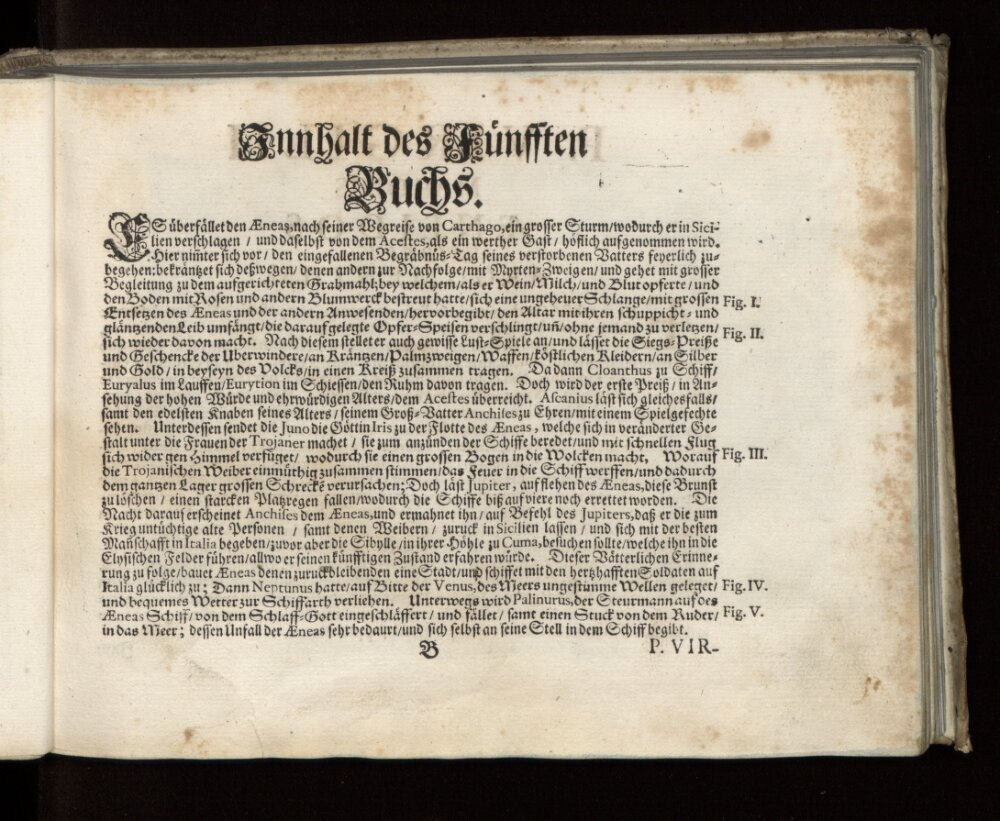 Innhalt des Fünfften
Buchs.
ES überfället den Æneas, nach seiner Wegreise von Carthago, ein grosser Sturm/ wodurch er in Sici-
lien verschlagen / und daselbst von dem Acestes, als ein werther Gast / höflich aufgenommen wird.
Hier nimter sich vor / den eingefallenen Begräbnüs-Tag seines verstorbenen Vatters feyerlich zu-
begehen: bekräntzet sich deßwegen / denen andern zur Nachfolge/ mit Myrten-Zweigen/ und gehet mit grosser
Begleitung zu dem aufgerichteten Grabmahl; bey welchem/ als er Wein/ Milch/ und Blut opferte / und
den Boden mit Rosen und andern Blumwerck bestreut hatte/ sich eine ungeheuer Schlange/ mit grossen Fig. I.
Entsetzen des Æneas und der andern Anwesenden/ hervorbegibt/ den Altar mit ihren schuppicht- und
gläntzenden Leib umfängt/ die darauf gelegte Opfer-Speisen verschlingt/ uñ/ ohne jemand zu verletzen/
sich wieder davon macht. Nach diesem stellet er auch gewisse Lust-Spiele an/ und lässet die Siegs-Preiße Fig. II.
und Geschencke der Uberwindere/ an Kräntzen/ Palmzweigen/ Waffen/ köstlichen Kleidern/ an Silber
und Gold / in beyseyn des Volcks/ in einen Kreiß zusammen tragen. Da dann Cloanthus zu Schiff/
Euryalus im Lauffen/ Eurytion im Schiessen/ den Ruhm davon tragen. Doch wird der erste Preiß/ in An-
sehung der hohen Würde und ehrwürdigen Alters/ dem Acestes überreicht. Ascanius läst sich gleichesfalls/
samt den edelsten Knaben seines Alters / seinem Groß-Vatter Anchises zu Ehren/ mit einem Spielgefechte
sehen. Unterdessen sendet die Juno die Göttin Iris zu der Flotte des Æneas, welche sich in veränderter Ge-
stalt unter die Frauen der Trojaner machet / sie zum anzünden der Schiffe beredet/ und mit schnellen Flug
sich wider gen Himmel verfüget/ wodurch sie einen grossen Bogen in die Wolcken macht. Worauf Fig. III.
die Trojanischen Weiber einmüthig zusammen stimmen/ das Feuer in die Schiff werffen/ und dadurch
dem gantzen Lager grossen Schreckē verursachen; Doch läst Jupiter, auf flehen des Æneas, diese Brunst
zu löschen / einen starcken Platzregen fallen/ wodurch die Schiffe biß auf viere noch errettet worden. Die
Nacht darauf erscheinet Anchises dem Æneas, und ermahnet ihn/ auf Befehl des Jupiters, daß er die zum
Krieg untüchtige alte Personen / samt denen Weibern / zuruck in Sicilien lassen / und sich mit der besten
Mañschafft in Italia begeben/ zuvor aber die Sibylle/ in ihrer Höhle zu Cuma, besuchen sollte/ welche ihn in die
Elysischen Felder führen/ allwo er seinen künfftigen Zustand erfahren würde. Dieser Vätterlichen Erinne-
rung zu folge/ bauet Æneas denen zuruckbleibenden eine Stadt/ und schiffet mit den hertzhafften Soldaten auf
Italia glücklich zu; Dann Neptunus hatte/ auf Bitte der Venus, des Meers ungestümme Wellen geleget/ Fig. IV.
und bequemes Wetter zur Schiffarth verliehen. Unterwegs wird Palinurus, der Steurmann auf des
Æneas Schiff/ von dem Schlaff-Gott eingeschläffert/ und fället/ samt einen Stuck von dem Ruder/ Fig. V.
in das Meer; dessen Unfall der Æneas sehr bedaurt/ und sich selbst an seine Stell in dem Schiff begibt.
B P. VIR-